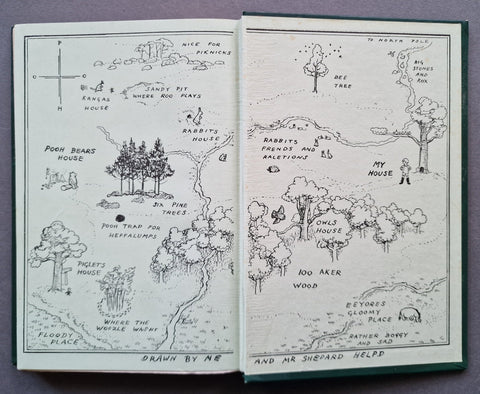 P
H
NICE FOR
PIKNICKS
KANGAS
HOUSE
SANDY PIT
WHERE ROO PLAYS
RABBITS
HOUSE
POOH BEARS
HOUSE
SIX PINE
TREES
POOH TRAP FOR
HEFFALUMPS
PIGLETS
HOUSE
WHERE THE
WOOZLE WASNT
FLOODY
PLACE
DRAWN BY ME
TO NORTH POLE
BIG
STONES
AND
ROX
BEE
TREE
RABBITS
FRENDS AND
RALETIONS
MY
HOUSE
OWLS
HOUSE
100 AKER
WOOD
EEYORES
GLOOMY
PLACE
RATHER BOGGY
AND SAD
AND MR SHEPARD HELPD